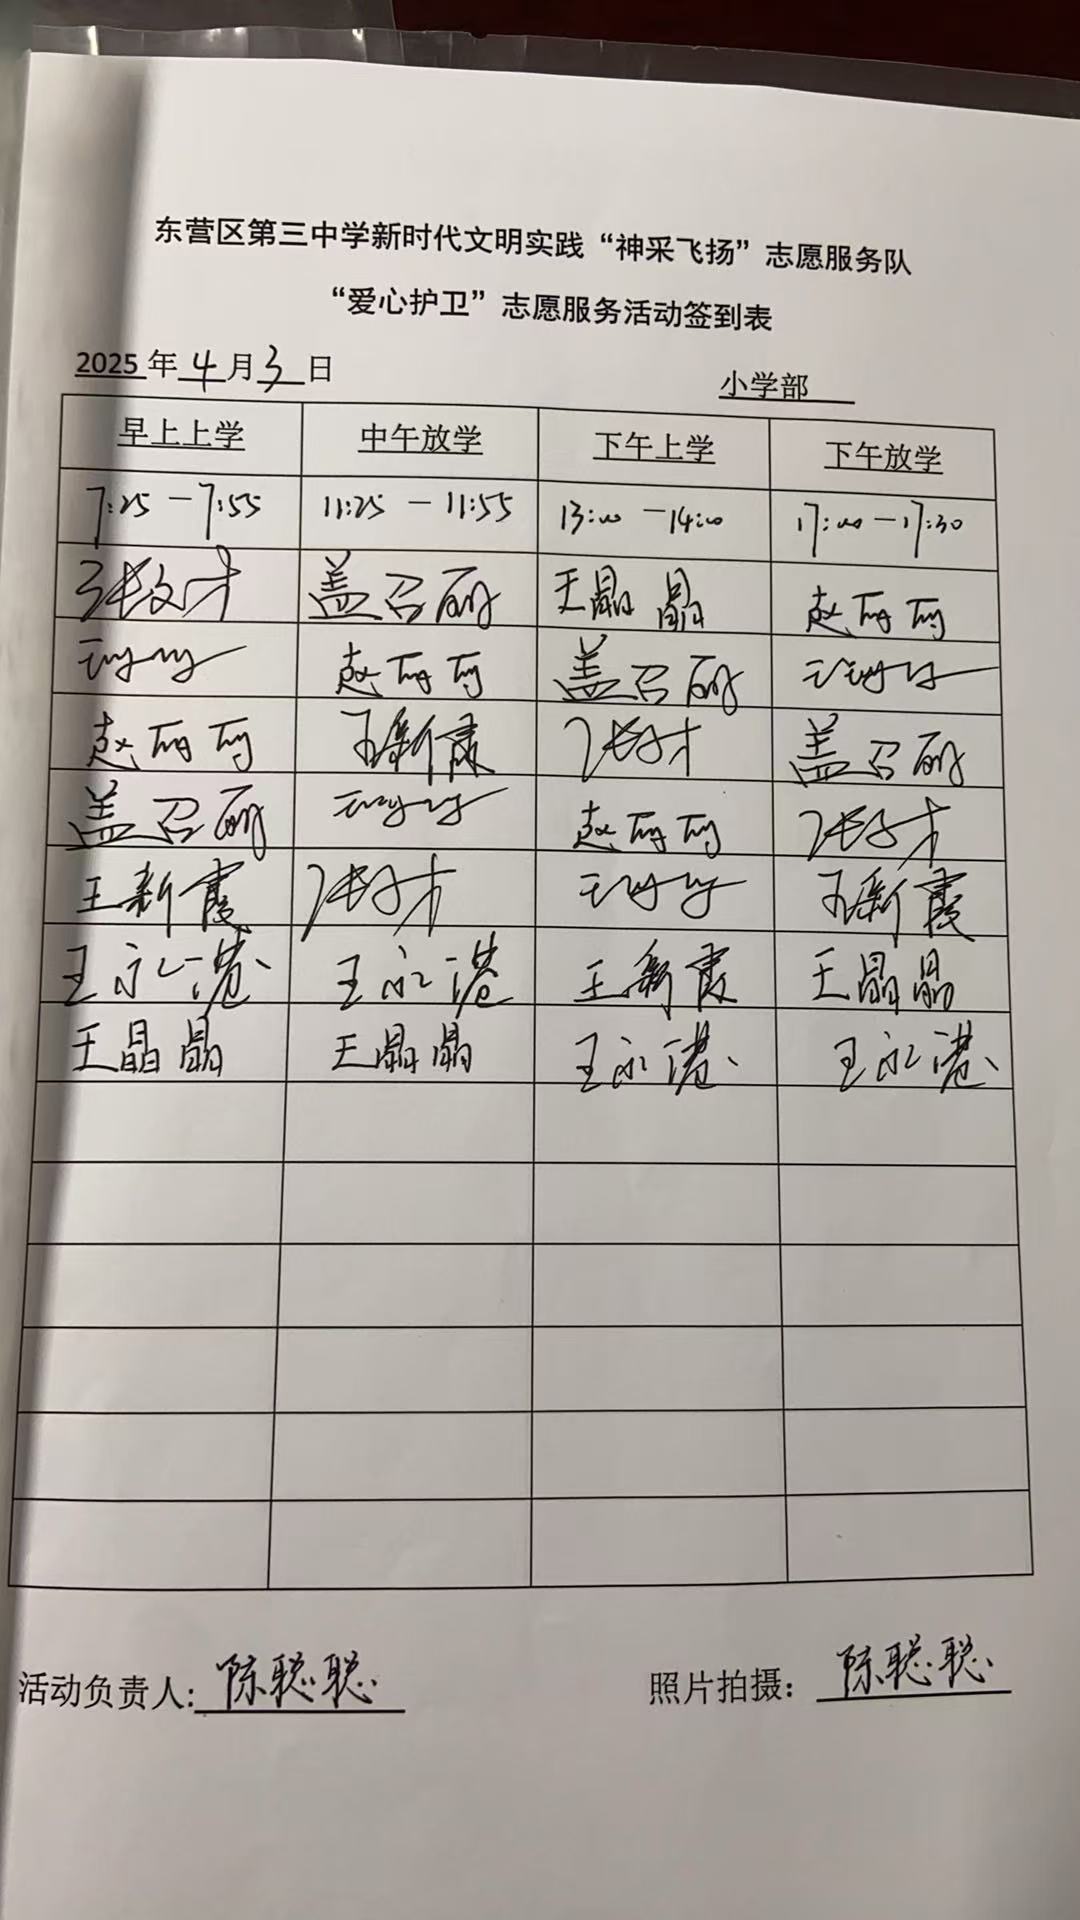 东营区第三中学新时代文明实践“神采飞扬”志愿服务队
“爱心护卫”志愿服务活动签到表
2025年4月3日 小学部
早上上学 中午放学 下午上学 下午放学
7:25－7:55 11:25－11:55 13:00－14:00 17:00－17:30
盖召丽 王晶晶 赵丽丽
赵丽丽 盖召丽
赵丽丽 王新霞 盖召丽
盖召丽 赵丽丽
王新霞 王新霞
王永港 王永港 王新霞 王晶晶
王晶晶 王晶晶 王永港 王永港
活动负责人：陈聪聪 照片拍摄：陈聪聪